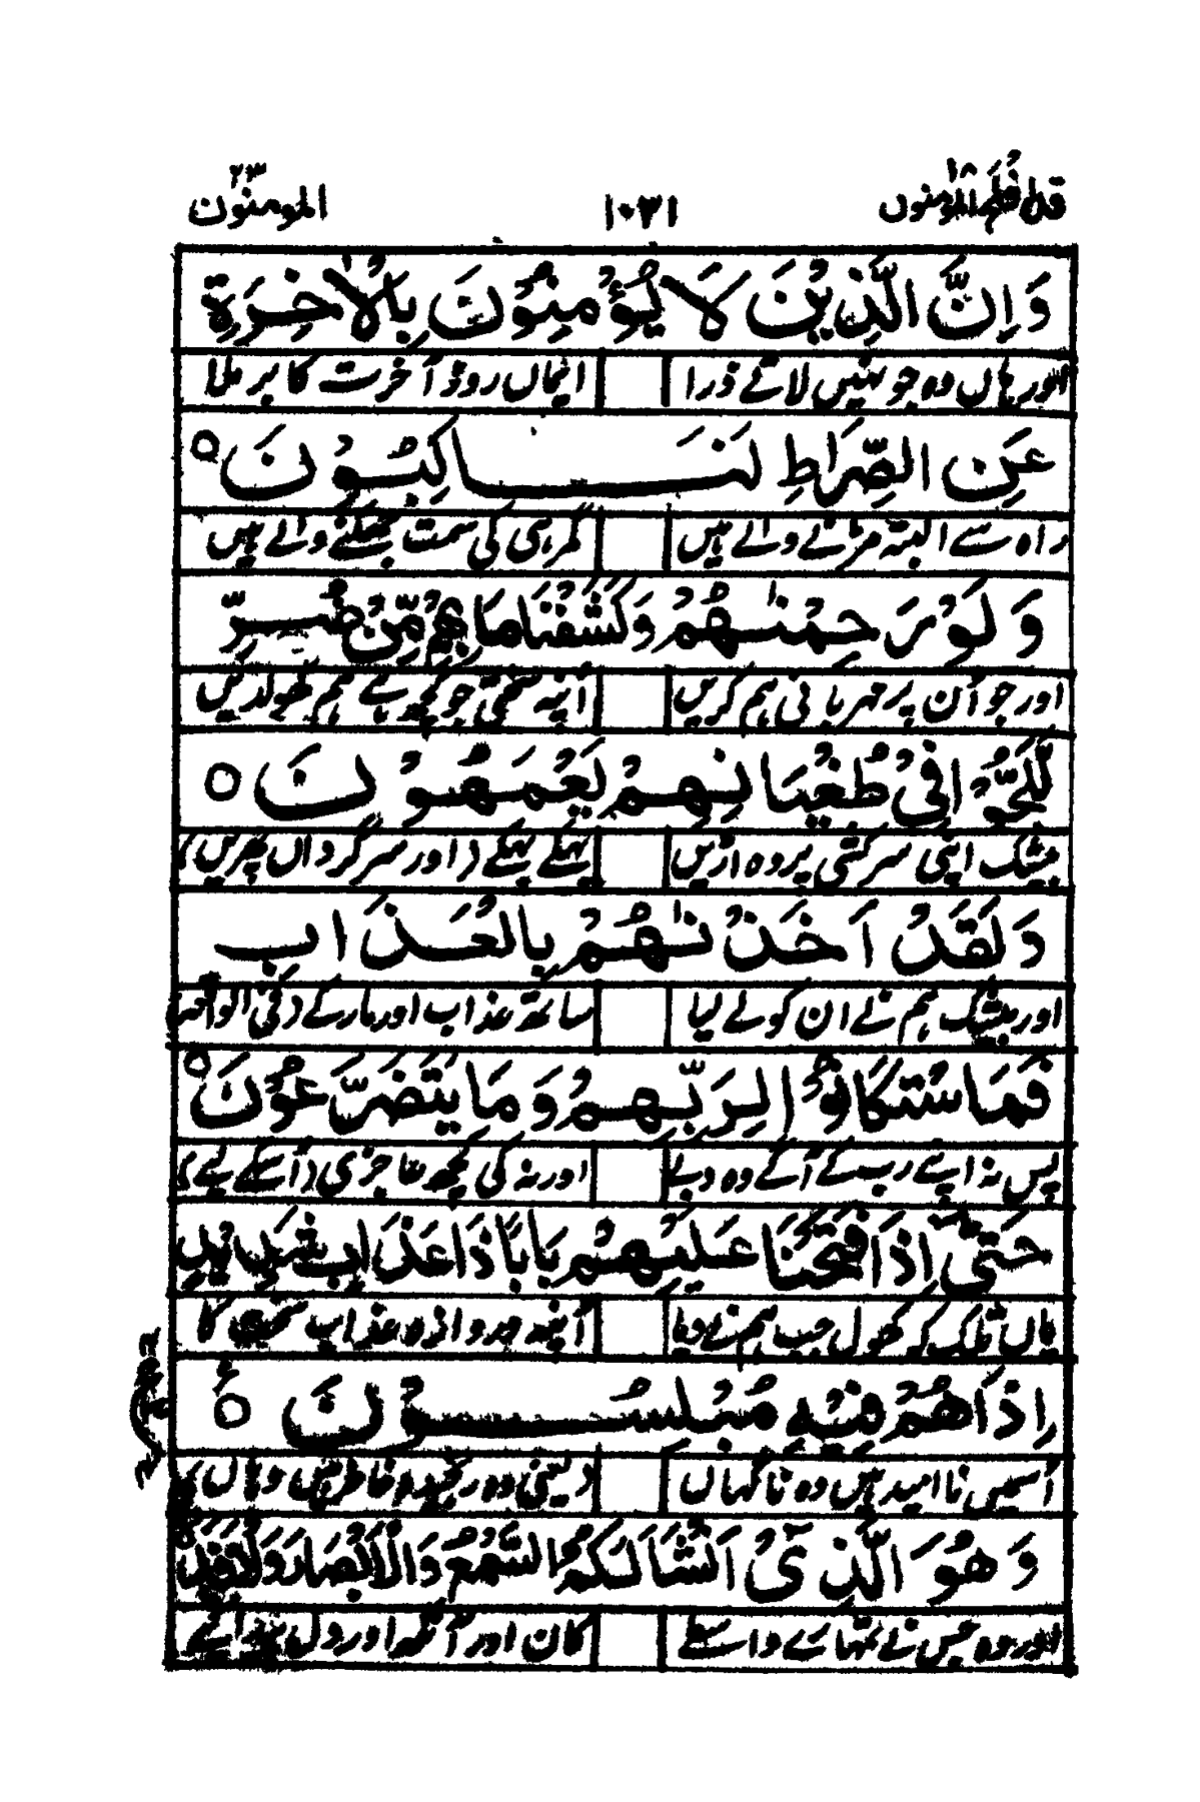 قد افلح المؤمنون ١٨ ١٠٣١ المومنون ٢٣
وَاِنَّ الَّذِيْنَ لَا يُؤْمِنُوْنَ بِالْاٰخِرَةِ
اور ہاں وہ جو نہیں لاتے ذرا ایماں روز آخرت کا بر ملا
عَنِ الصِّرَاطِ لَنَاكِبُوْنَ ○
راہ سے البتہ مڑنے والے ہیں گمرہی کی سمت جھکنے والے ہیں
وَلَوْ رَحِمْنٰهُمْ وَكَشَفْنَا مَا بِهِمْ مِّنْ ضُرٍّ
اور جو اُن پر مہربانی ہم کریں اپنہ سختی جو کچھ ہے ہم کھولدیں
لَّلَجُّوْا فِيْ طُغْيَانِهِمْ يَعْمَهُوْنَ ○
بیشک اپنی سرکشی پر وہ اڑیں بہکے بہکے (اور سرگرداں پھریں)
وَلَقَدْ اَخَذْنٰهُمْ بِالْعَذَابِ
اور بیشک ہم نے ان کو لے لیا ساتھ عذاب اور مار کے
فَمَا اسْتَكَانُوْا لِرَبِّهِمْ وَمَا يَتَضَرَّعُوْنَ ○
پس نہ اپنے رب کے آگے وہ دبے اور نہ کی کچھ عاجزی (اُسکے لیے)
حَتّٰٓى اِذَا فَتَحْنَا عَلَيْهِمْ بَابًا ذَا عَذَابٍ شَدِيْدٍ
یاں تلک کہ کھول جب ہم نے دیا اُنپہ دروازہ عذاب سخت کا
اِذَا هُمْ فِيْهِ مُبْلِسُوْنَ ○
اُسمیں نا امید ہیں وہ ناگہاں (یعنی وہ رنجیدہ خاطر ہیں وہاں)
وَهُوَ الَّذِيْٓ اَنْشَاَ لَكُمُ السَّمْعَ وَالْاَبْصَارَ وَالْاَفْئِدَةَ
اور وہ جس نے تمہارے واسطے کان اور آنکھ اور دل پیدا کئے